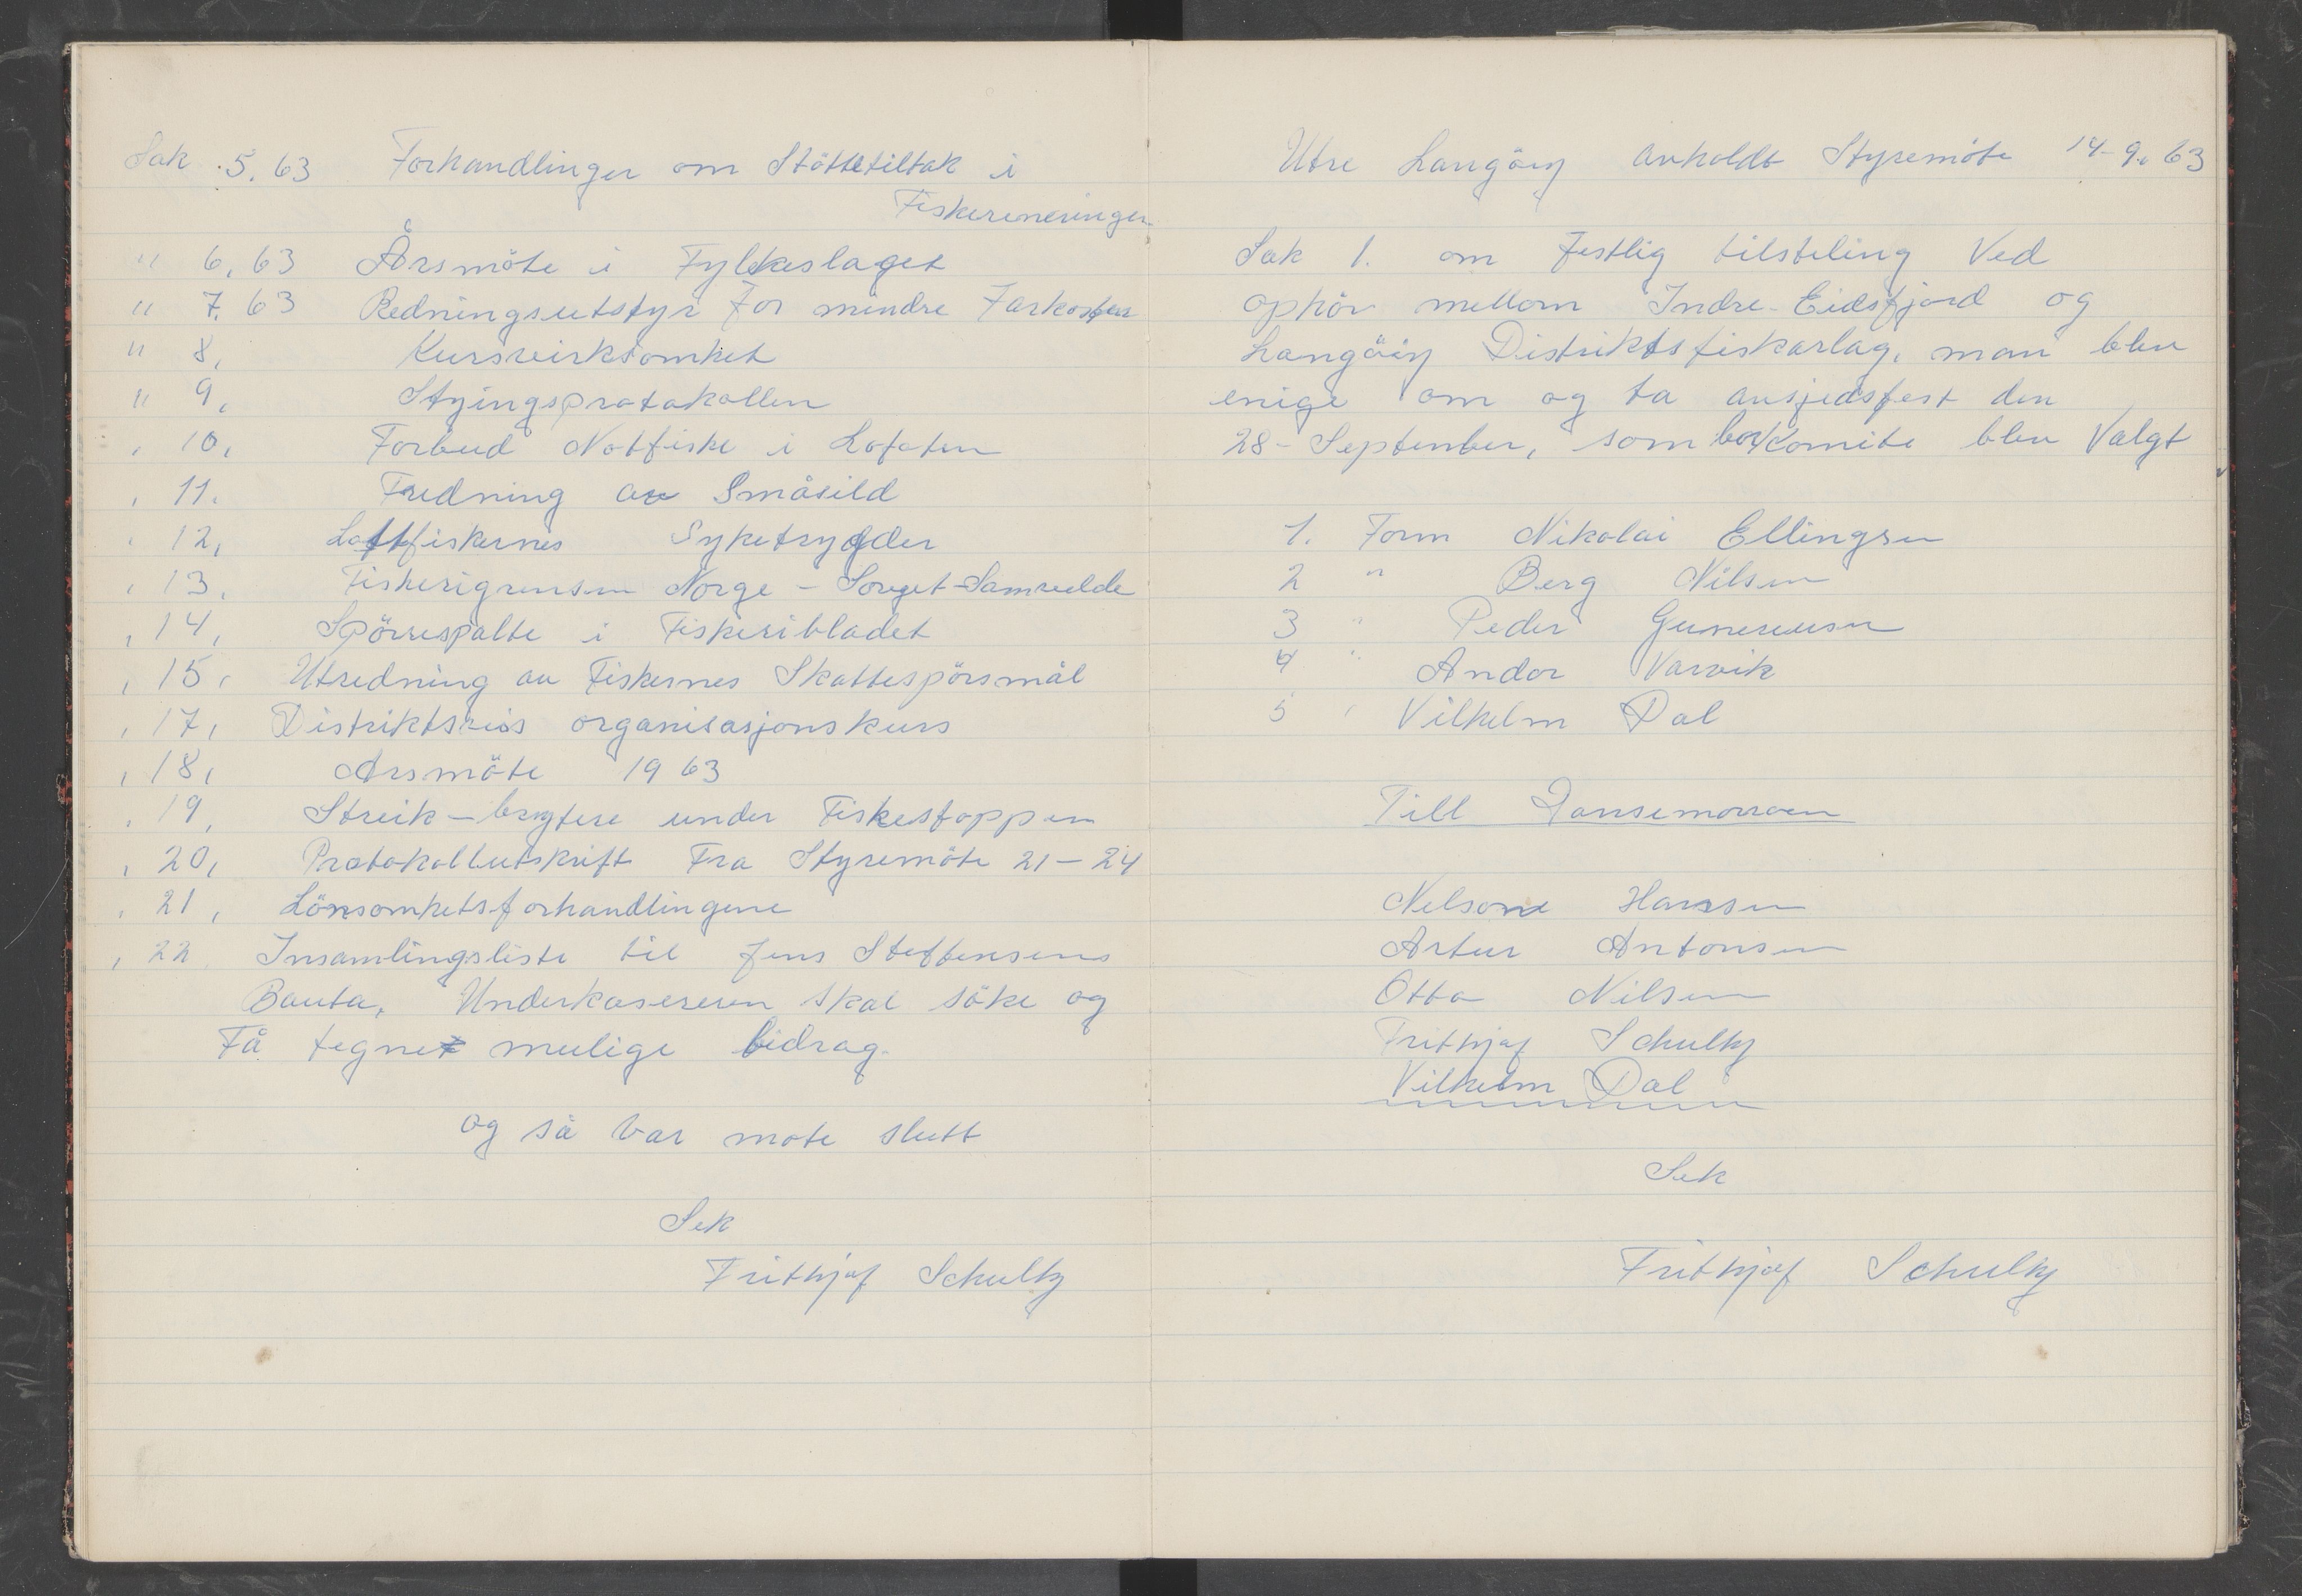 Sak 5. 63 Forhandlinger om Støttetiltak i
Fiskerineringen
" 6, 63 Årsmöte i Fylkeslaget
" 7. 63 Redningsutstyr For mindre Farkoster
" 8, Kursvirksomhet
" 9, Styingsprotakollen
, 10, Forbud Notfiske i Lofoten
, 11. Fredning av Småsild
, 12, Lottfiskernes Syketrygder
, 13, Fiskerigrensen Norge - Sovjet-Samvelde
, 14, Spörrespalte i Fiskeribladet
, 15, Utredning av Fiskernes Skattespörsmål
, 17, Distriktsvis organisasjonskurs
, 18, Årsmöte 1963
, 19, Streik-brytere under Fiskestoppen
, 20, Protokollutskrift Fra Styremöte 21-24
, 21, Lönsomhetsforhandlingene
, 22 Insamlingsliste til Jens Steffensens
Bauta, Underkasereren skal söke og
Få tegnet mulige bidrag.
og så var mote slutt
Sek
Frithjof Schultz
Utre Langöy avholdt Styremöte 14-9. 63
Sak 1. om Festlig tilsteling Ved
ophör mellom Indre-Eidsfjord og
Langöy Distriktsfiskarlag, man blev
enige om og ta avsjedsfest den
28- September, som Komite blev Valgt
1. Form Nikolai Ellingsen
2 " Berg Nilsen
3 " Peder Gunereusen
4 " Andor Varvik
5 , Vilhelm Dal
Till Dansemorroen
Nelsone Hanssen
Artur Antonsen
Otto Nilsen
Frithjof Schultz
Vilhelm Dal
Sek
Frithjof Schultz